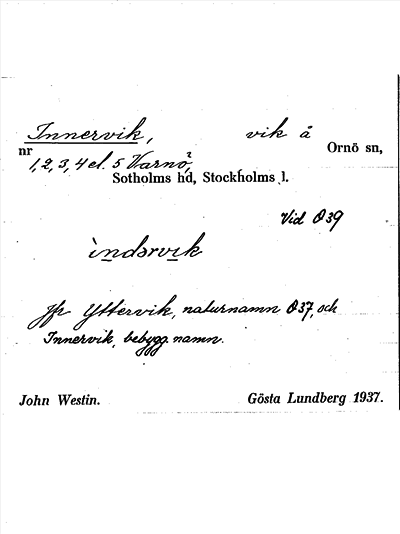 Innervik, vik å Ornö sn,
nr 1, 2, 3, 4 el. 5 Varnö,
Sotholms hd, Stockholms l.
Vid Ö39
ìndərvɩk
Jfr Yttervik, naturnamn Ö37, och
Innervik, bebygg. namn.
John Westin. Gösta Lundberg 1937.